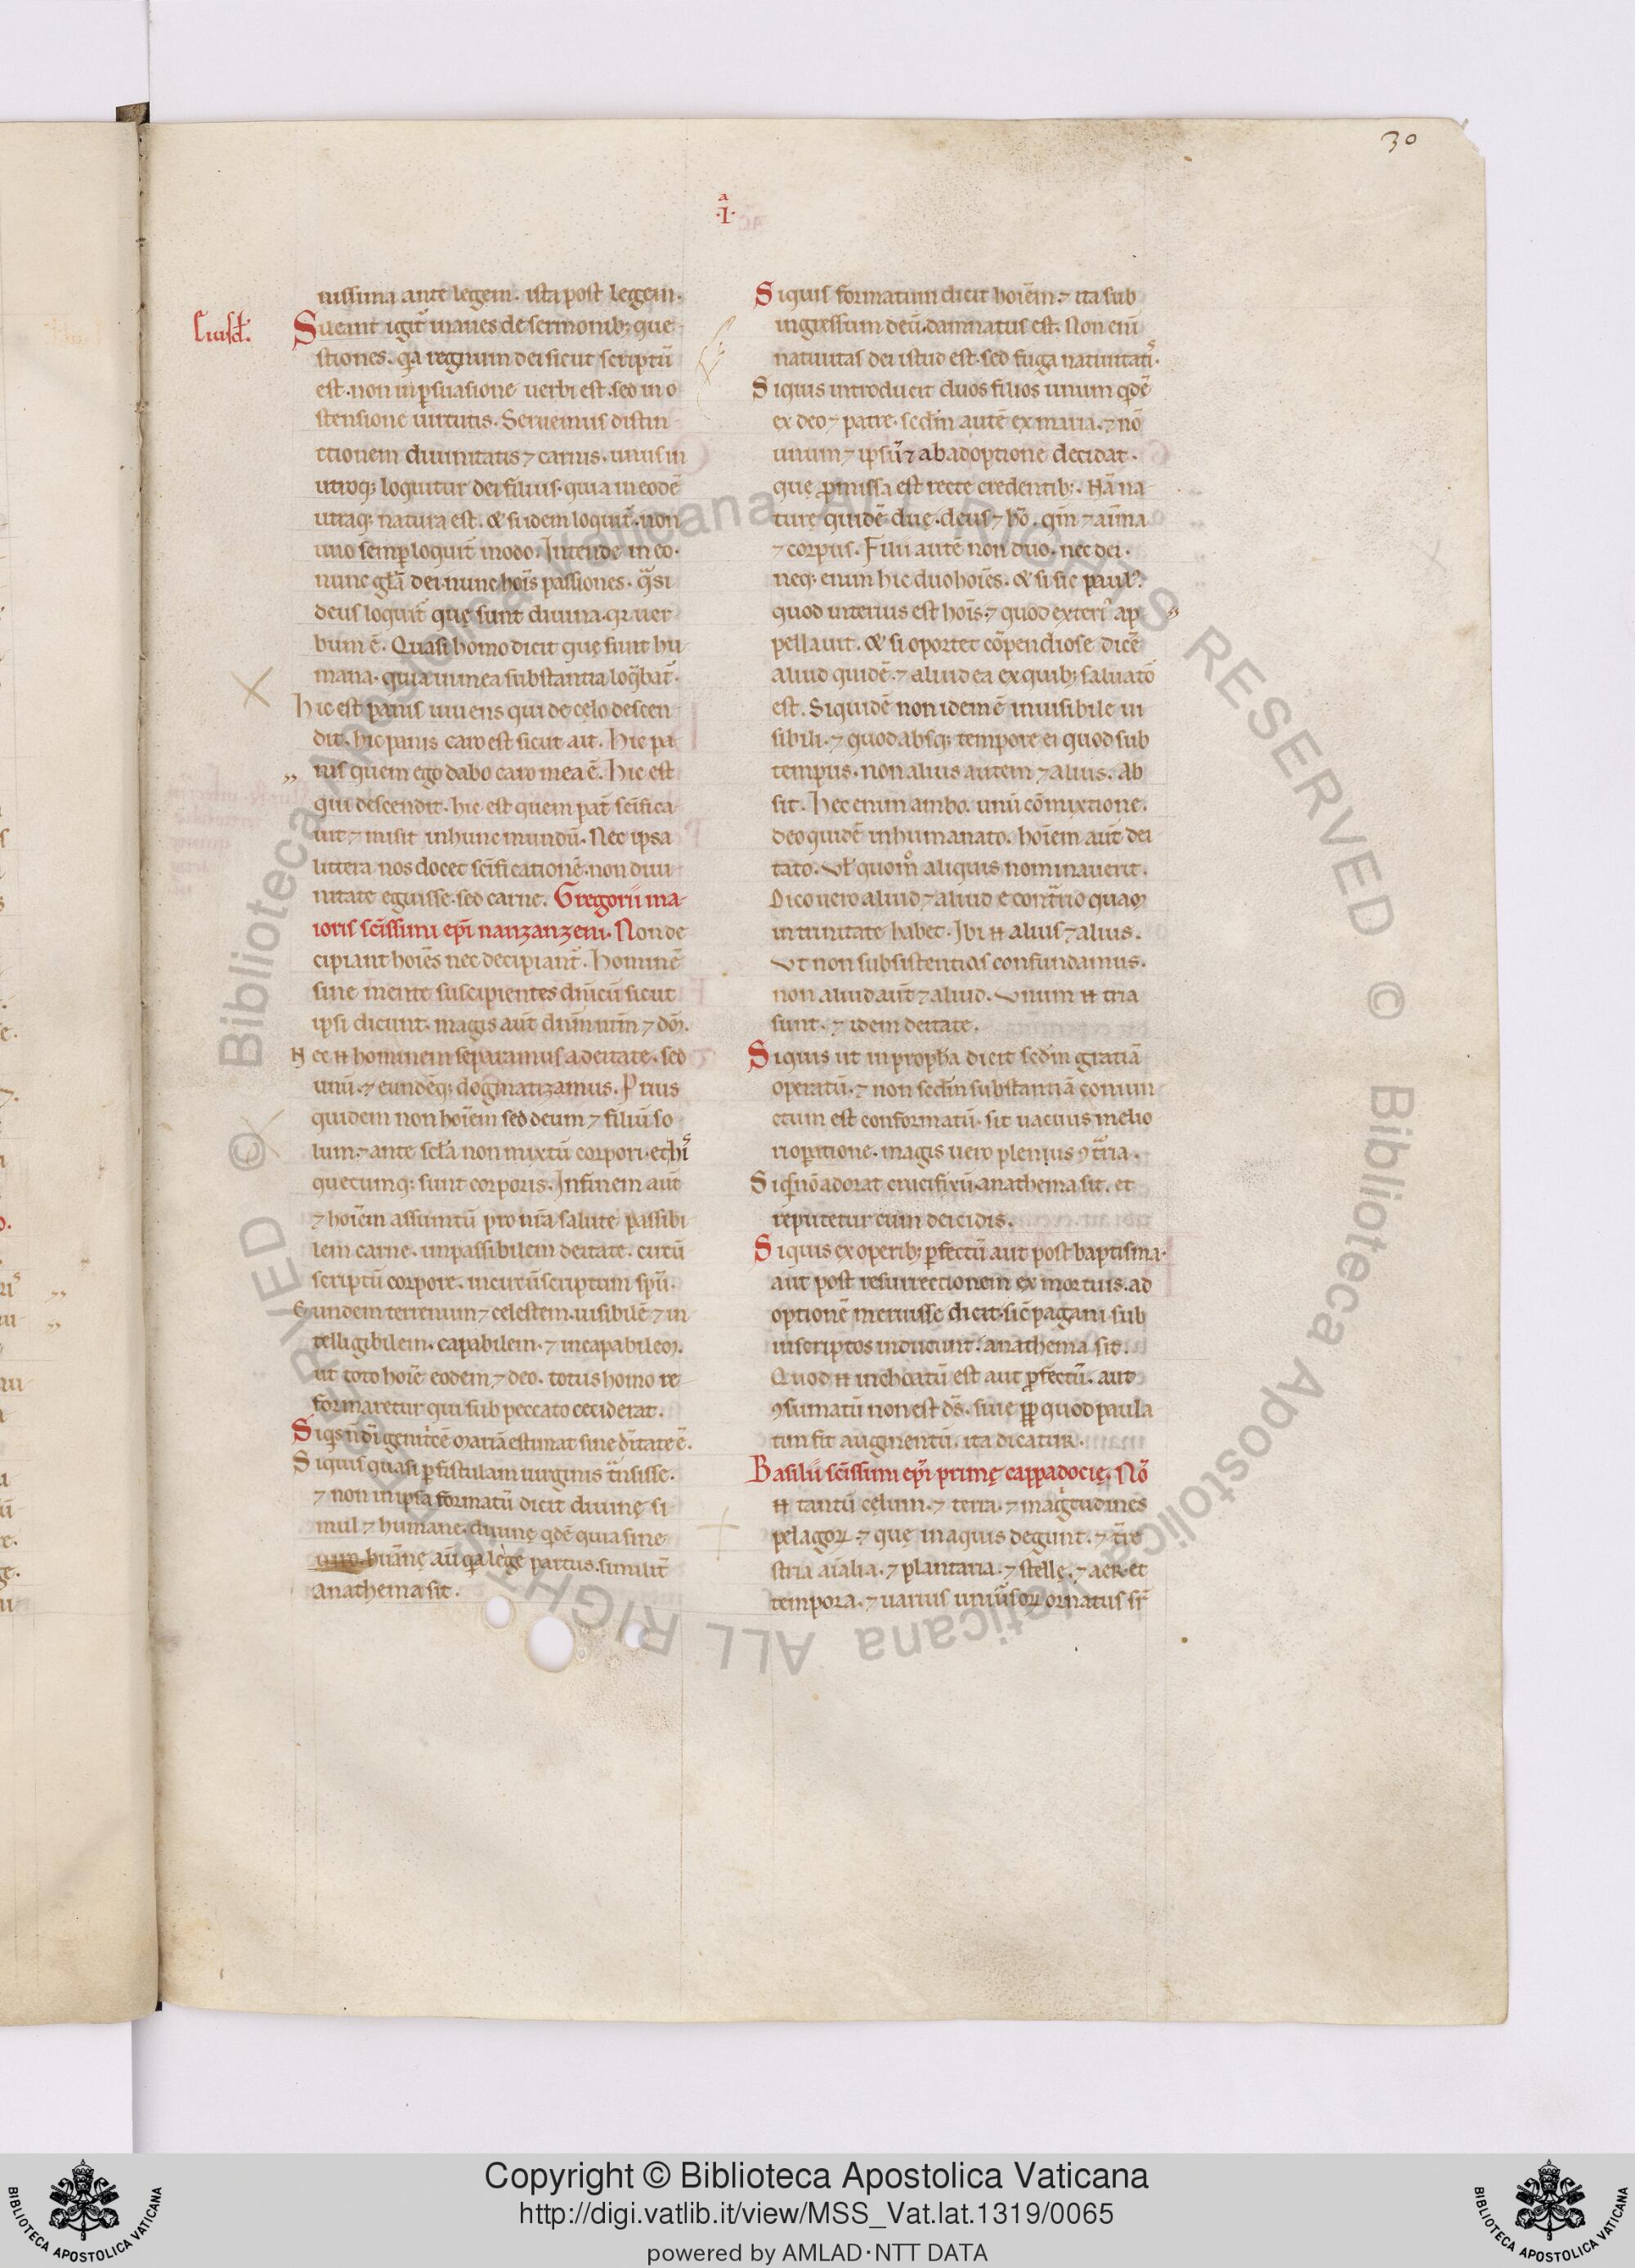 30
a
·I·
nissima ante legem. ista post legem.
Eiusd̄.
Sueant igit̄ inanes de sermonib; que
stiones. q̄a regnum dei sicut scriptū
est. non in p̄suasione uerbi est. sed in o
stensione uirtutis. Seruemus distin
ctionem diuinitatis ⁊ carnis. unus in
utroq; loquitur dei filius. quia in eodē
utraq; natura est. & si idem loquit̄. non
uno semp̄ loquit̄ modo. Intende in eo.
nunc gl̄a dei. nunc hoīs passiones. q̄si
deus loquit̄ quę sunt diuina. qr uer
bum ē. Quasi homo dicit quę sunt hu
mana. quia in mea substantia loq̄bat̄.
hic est panis uiuens qui de celo descen
dit. hic panis caro est sicut ait. Hic pa
„ nis quem ego dabo caro mea ē. Hic est
qui descendit. hic est quem pat̄ sc̄ifica
uit ⁊ misit in hunc mundū. Nec ipsa
littera nos docet sc̄ificationē. non diui
nitate eguisse. sed carne. Gregorii ma
ioris sc̄issimi ep̄i nanzanzeni. Non de
cipiant hoīes nec decipiant̄. Hominē
sine mente suscipientes dn̄icū sicut
ipsi dicunt. magis aut̄ dn̄m nr̄m ⁊ dm̄.
Nec n̄ hominem separamus a deitate. sed
unū. ⁊ eundēq; dogmatizamus. Prius
quidem non hoīem sed deum ⁊ filiū so
lum. ⁊ ante sc̄la non mixtū corpori. et hi᷒
quecumq; sunt corporis. In finem aut̄
⁊ hoīem assumtū pro nr̄a salute passibi
lem carne. impassibilem deitate. circū
scriptū corpore. incircūscriptum sp̄u.
Eundem terrenum ⁊ celestem. uisibilē ⁊ in
telligibilem. capabilem. ⁊ incapabilem.
ut toto hoīe eodem ⁊ deo. totus homo re
formaretur qui sub peccato ceciderat.
Siq̄s n̄ dī genit̄cē mariā estimat sine dītate ē.
Siquis quasi p̄ fistulam uirginis t̄nsisse.
⁊ non in ipsa formatū dicit diuinę si
mul ⁊ humane. diuinę q̄dē quia sine
uiro. hūanę aū q̄a lege partus. similit̄
anathema sit.
Siquis formatum dicit hoīem. ⁊ ita sub
ingressum deū. damnatus est. Non enī
natiuitas dei istud est. sed fuga natiuitati᷒.
Siquis introducit duos filios unum q̄dē
ex deo ⁊ patre. sed̄m autē ex maria. ⁊ nō
unum ⁊ ipsū. ⁊ ab adoptione decidat.
quę p̄missa est recte credentib;. Nā na
turę quidē duę. deus ⁊ hō. q̄m ⁊ aīma
⁊ corpus. Filii autē non duo. nec dei.
neq; enim hic duo hoīes. & si sic paul᷒.
quod interius est hoīs. ⁊ quod exteri᷒ ap „
pellauit. & si oportet cōpendiose dicē
aliud quidē. ⁊ aliud ea ex quib; saluatō
est. Siquidē non idem ē inuisibile ui
sibili. ⁊ quod absq; tempore ei quod sub
tempus. non alius autem ⁊ alius. Ab
sit. Hec enim ambo. unū cōmixtione.
deo quidē inhumanato. hoīem aut̄ dei
tato. Vl̄ quom̊ aliquis nominauerit.
Dico uero aliud ⁊ aliud e cont̄rio quam
in trinitate habet. Ibi n̄ alius ⁊ alius.
Vt non subsistentias confundamus.
non aliud aut̄ ⁊ aliud. Vnum n̄ tria
sunt. ⁊ idem deitate.
Siquis ut in proph̄a dicit sed̄m gratiā
operatū. ⁊ non sed̄m substantiā coniun
ctum est conformatū. sit uacuus melio
ri op̄atione. magis uero plenius ꝯt̄ria.
Siq̄s nō adorat crucifixū. anathema sit. et
reputetur cum deicidis.
Siquis ex operib; p̄fectū aut post baptisma.
aut post resurrectionem ex mortuis. ad
optionē meruisse dicit. sic̄ pagani sub
inscriptos inducunt. anathema sit.
Quod n̄ inchoatū est aut p̄fectū. aut
ꝯsumatū non est dš. siue pp̄ quod paula
tim fit augmentū. ita dicatur.
Basilii sc̄issimi ep̄i primę cappadocię. Nō
n̄ tantū cęlum. ⁊ terra. ⁊ magnitudines
pelagoꝝ. ⁊ quę in aquis degunt. ⁊ t̄re
stria aīalia. ⁊ plantaria. ⁊ stellę. ⁊ aer. et
tempora. ⁊ uarius uniūsoꝝ ornatus sr̄
© Biblioteca Apostolica Vaticana ALL RIGHTS RESERVED © Biblioteca Apostolica Vaticana ALL RIGHTS RESERVED
BIBLIOTECA APOSTOLICA VATICANA
Copyright © Biblioteca Apostolica Vaticana
http://digi.vatlib.it/view/MSS_Vat.lat.1319/0065
powered by AMLAD·NTT DATA
BIBLIOTECA APOSTOLICA VATICANA